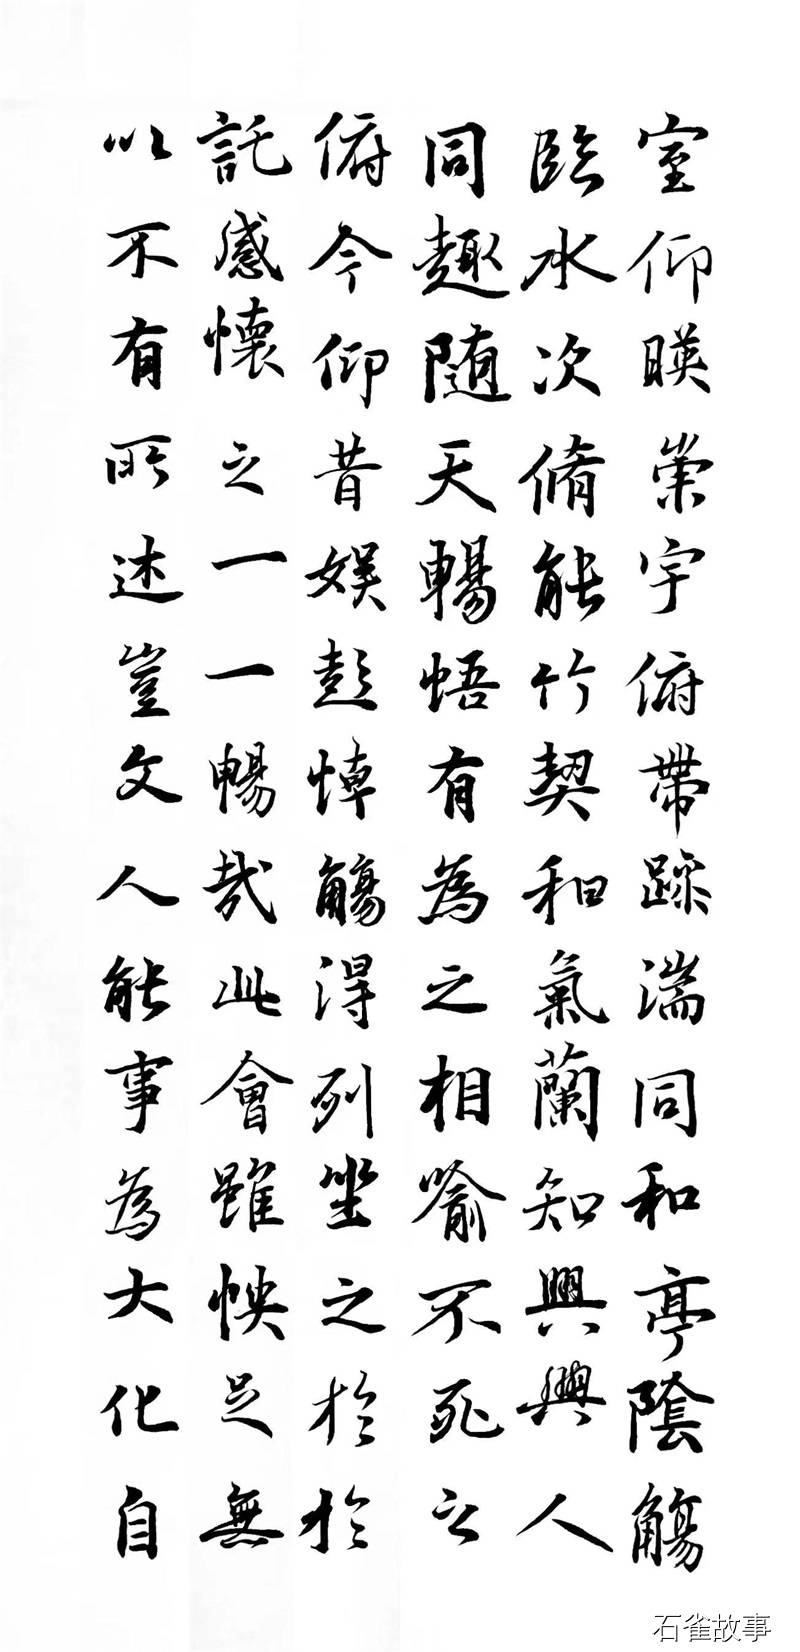 室仰暎崇宇俯帶湍同和亭陰觴
臨水次脩能竹契和氣蘭知興興人
同趣随天暢悟有為之相喻不死之
俯今仰昔娛彭悼觴得列坐之於於
託感懷之一一暢哉此會雖怏足無
以不有所述豈文人能事為大化自
石雀故事